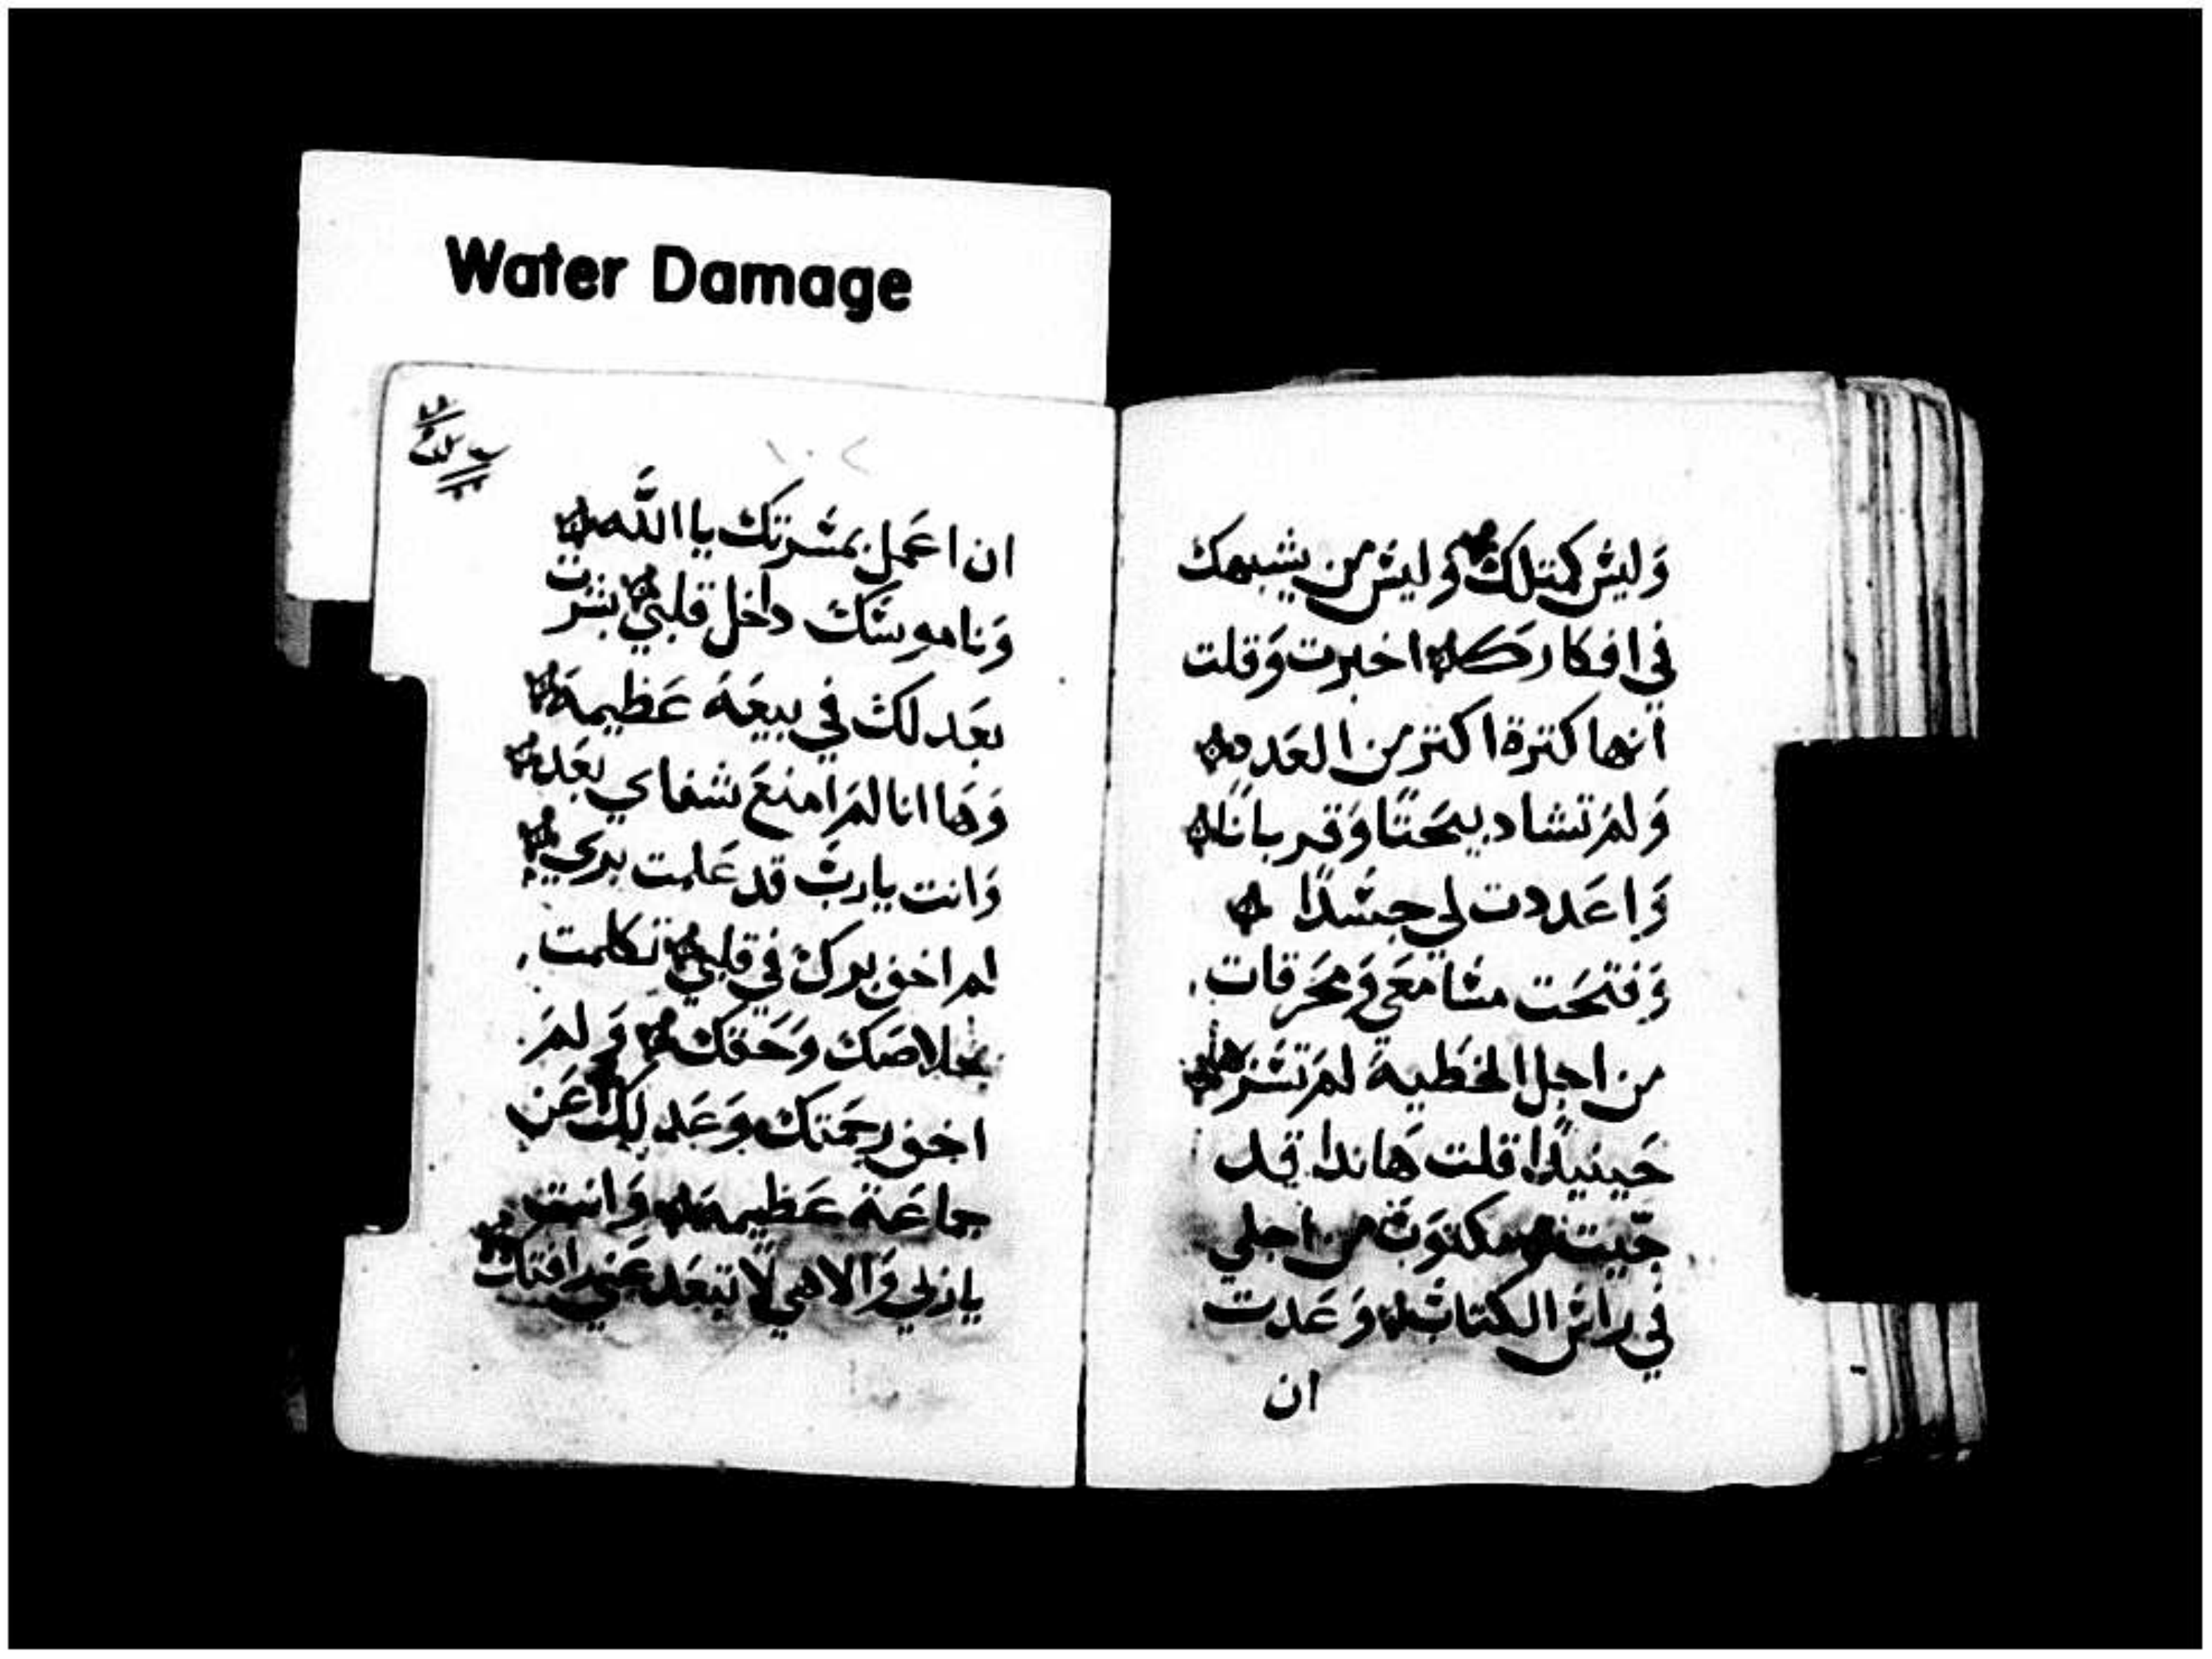 Water Damage
وَليسَ كمتلك وَليسَ من يشبهك
في افكارَكَ اخبرت وَقلت
انها كترة اكتر من العَدد
وَلمَ تشا ديبحَتًا وَقربانًا
وَاعَددت لي جسَدًا
وَفتحَت مسَامعَي وَمحَرقات
من اجل الخطية لمَ تسَر
حَينيدًا قلت هَاندا قد
جّيت مكتوَبَ من اجلي
في راسَ الكتابَ وَعَدت
ان
١٠٢
ان اعَمل بمسَرتك يا اللَّه
وَناموسَك داخل قلبي بشرت
بعَدلك في بيعَة عَظيمة
وَهَا انا لمَ امنعَ شفاي بعَد
وَانت يا ربَ قد عَلمت بري
لم اخفي برك في قلبي تكلمت
بخلاصَك وَحَقك وَلمَ
اخفي رحمَتك وَعَدلك عَن
جماعَة عَظيمة وَانت
يا ربي وَالاهي لَا تبعَد عَني رافتك